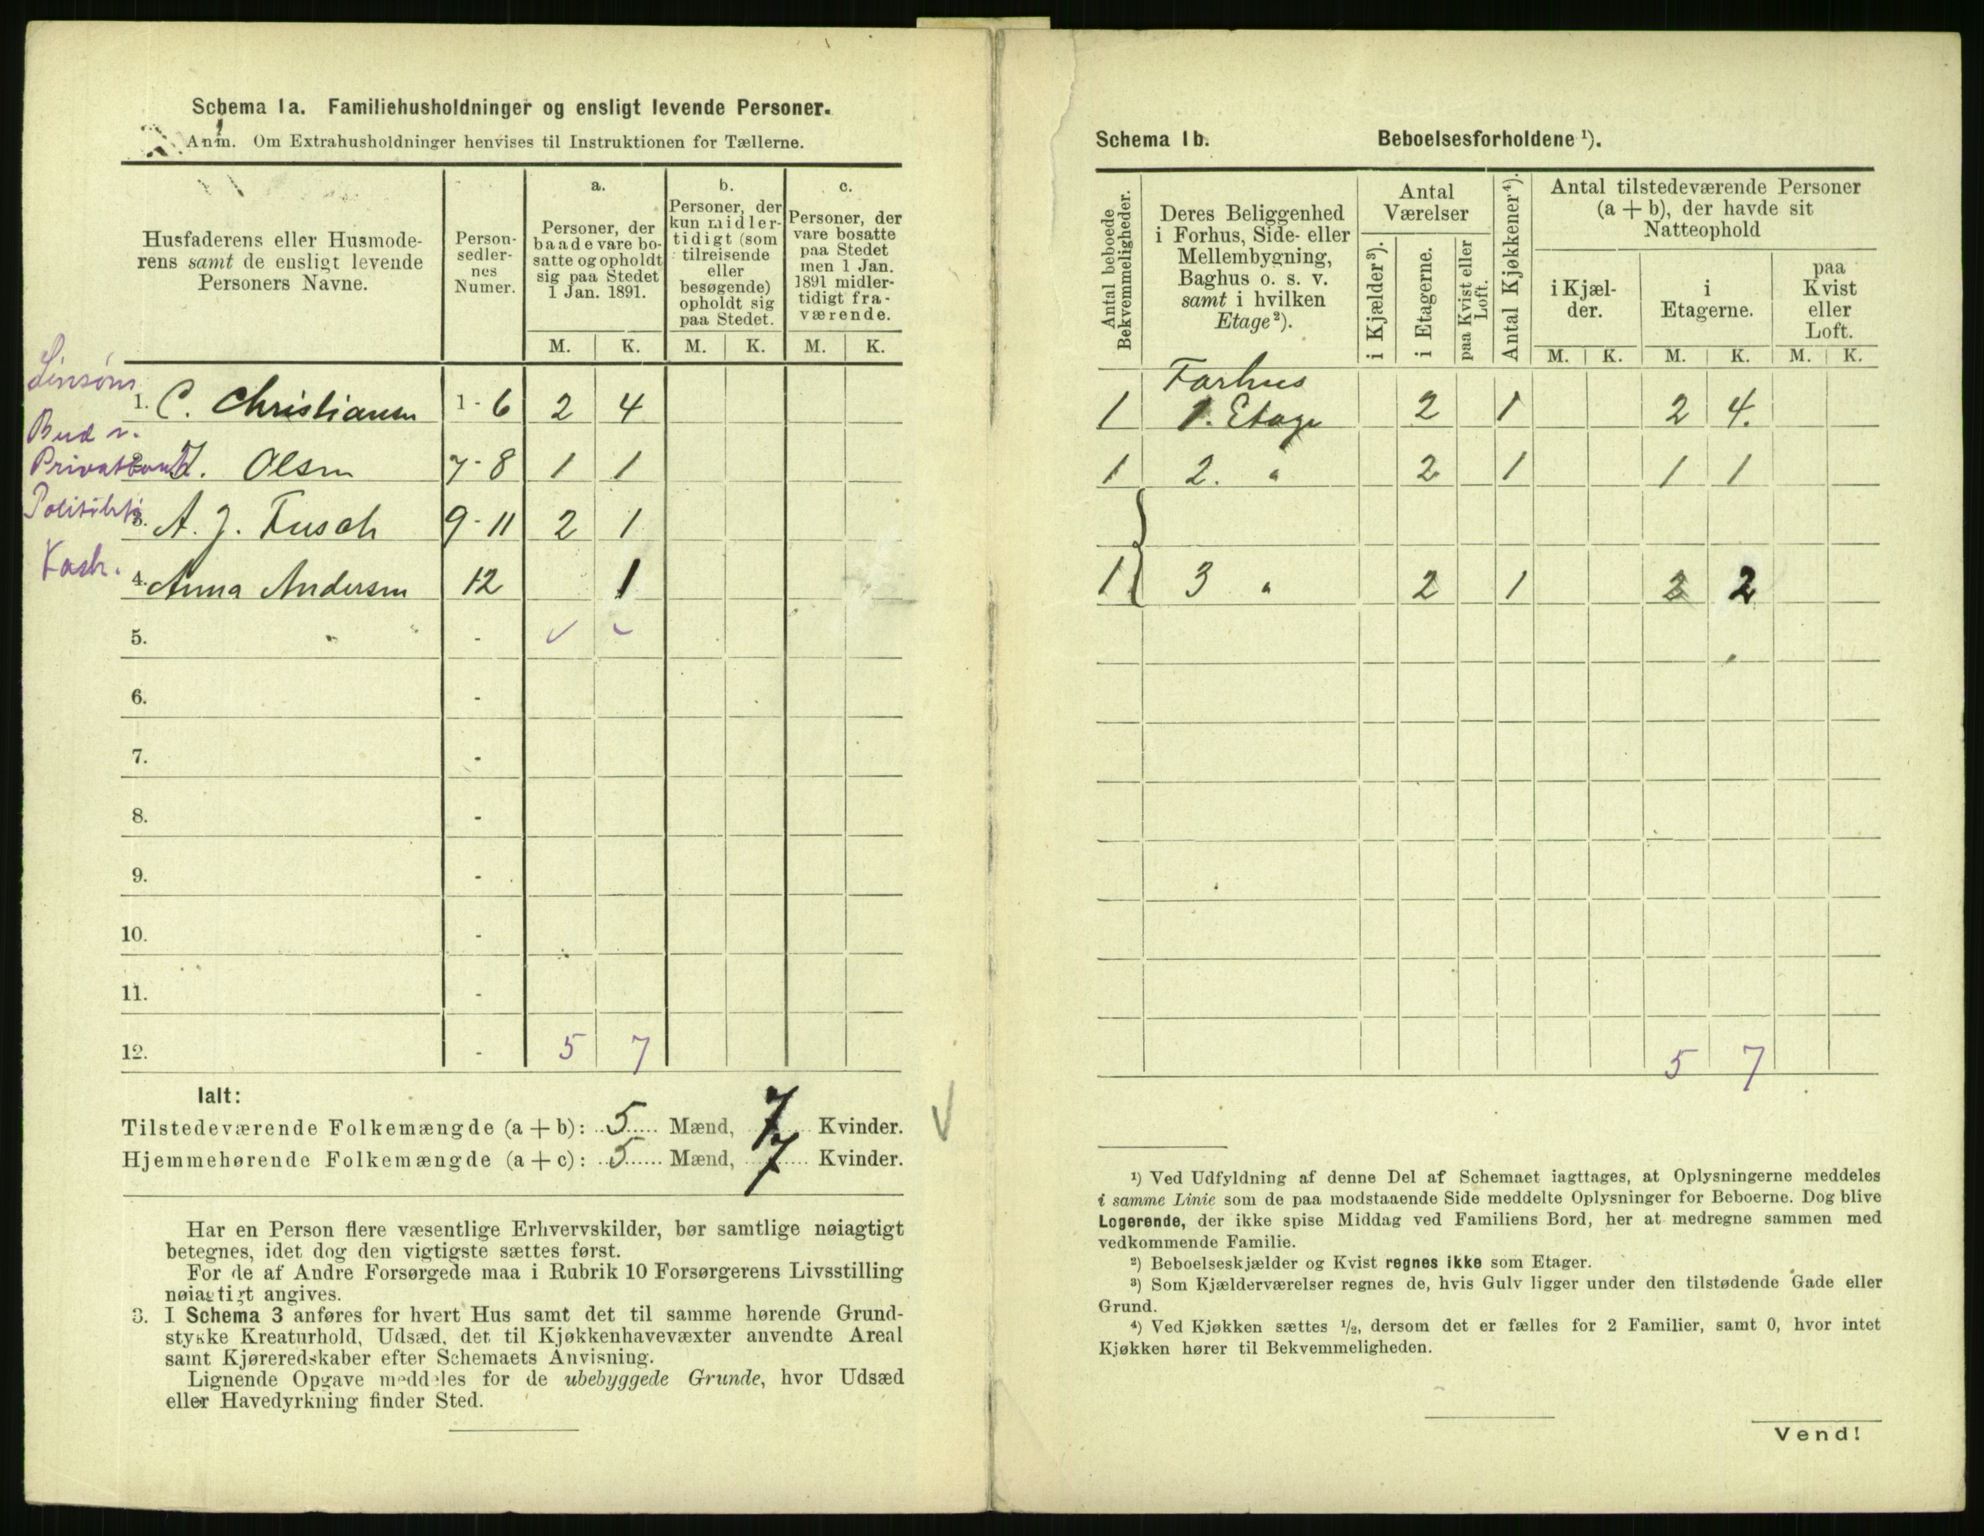 Schema 1a. Familiehusholdninger og ensligt levende Personer.
Anm. Om Extrahusholdninger henvises til Instruktionen for Tællerne.
Husfaderens eller Husmode-
rens samt de ensligt levende
Personers Navne.
Person-
sedler-
nes
Numer.
a.
Personer, der
baade vare bo-
satte og opholdt
sig paa Stedet
1 Jan. 1891.
b.
Personer, der
kun midler-
tidigt (som
tilreisende
eller
besøgende)
opholdt sig
paa Stedet.
c.
Personer, der
vare bosatte
paa Stedet
men 1 Jan.
1891 midler-
tidigt fra-
værende.
M. K. M. K. M. K.
1. C. Christiansen 1-6 2 4
Bud v.
2. J. Olsen 7-8 1 1
3. A. J. Fusch 9-11 2 1
4. Anna Andersen 12 1
5. -
6. -
7. -
8. -
9. -
10. -
11. -
12. - 5 7
Ialt:
Tilstedeværende Folkemængde (a + b): 5 Mænd, 7 Kvinder.
Hjemmehørende Folkemængde (a + c): 5 Mænd, 7 Kvinder.
Har en Person flere væsentlige Erhvervskilder, bør samtlige nøiagtigt
betegnes, idet dog den vigtigste sættes først.
For de af Andre Forsørgede maa i Rubrik 10 Forsørgerens Livsstilling
nøiagtigt angives.
3. I Schema 3 anføres for hvert Hus samt det til samme hørende Grund-
stykke Kreaturhold, Udsæd, det til Kjøkkenhavevæxter anvendte Areal
samt Kjøreredskaber efter Schemaets Anvisning.
Lignende Opgave meddeles for de ubebyggede Grunde, hvor Udsæd
eller Havedyrkning finder Sted.
Schema 1b. Beboelsesforholdene ¹).
Antal beboede
Bekvemmeligheder.
Deres Beliggenhed
i Forhus, Side- eller
Mellembygning,
Baghus o. s. v.
samt i hvilken
Etage²).
Antal
Værelser
i Kjælder³).
i Etagerne.
paa Kvist eller
Loft.
Antal Kjøkkener⁴).
Antal tilstedeværende Personer
(a + b), der havde sit
Natteophold
i Kjæl-
der.
i
Etagerne.
paa
Kvist
eller
Loft.
M. K. M. K. M. K.
Forhus
1 1. Etage 2 1 2 4.
1 2. " 2 1 1 1
1 3 " 2 1 2 2
5 7
¹) Ved Udfyldning af denne Del af Schemaet iagttages, at Oplysningerne meddeles
i samme Linie som de paa modstaaende Side meddelte Oplysninger for Beboerne. Dog blive
Logerende, der ikke spise Middag ved Familiens Bord, her at medregne sammen med
vedkommende Familie.
²) Beboelseskjælder og Kvist regnes ikke som Etager.
³) Som Kjælderværelser regnes de, hvis Gulv ligger under den tilstødende Gade eller
Grund.
⁴) Ved Kjøkken sættes ¹/₂, dersom det er fælles for 2 Familier, samt 0, hvor intet
Kjøkken hører til Bekvemmeligheden.
Vend!